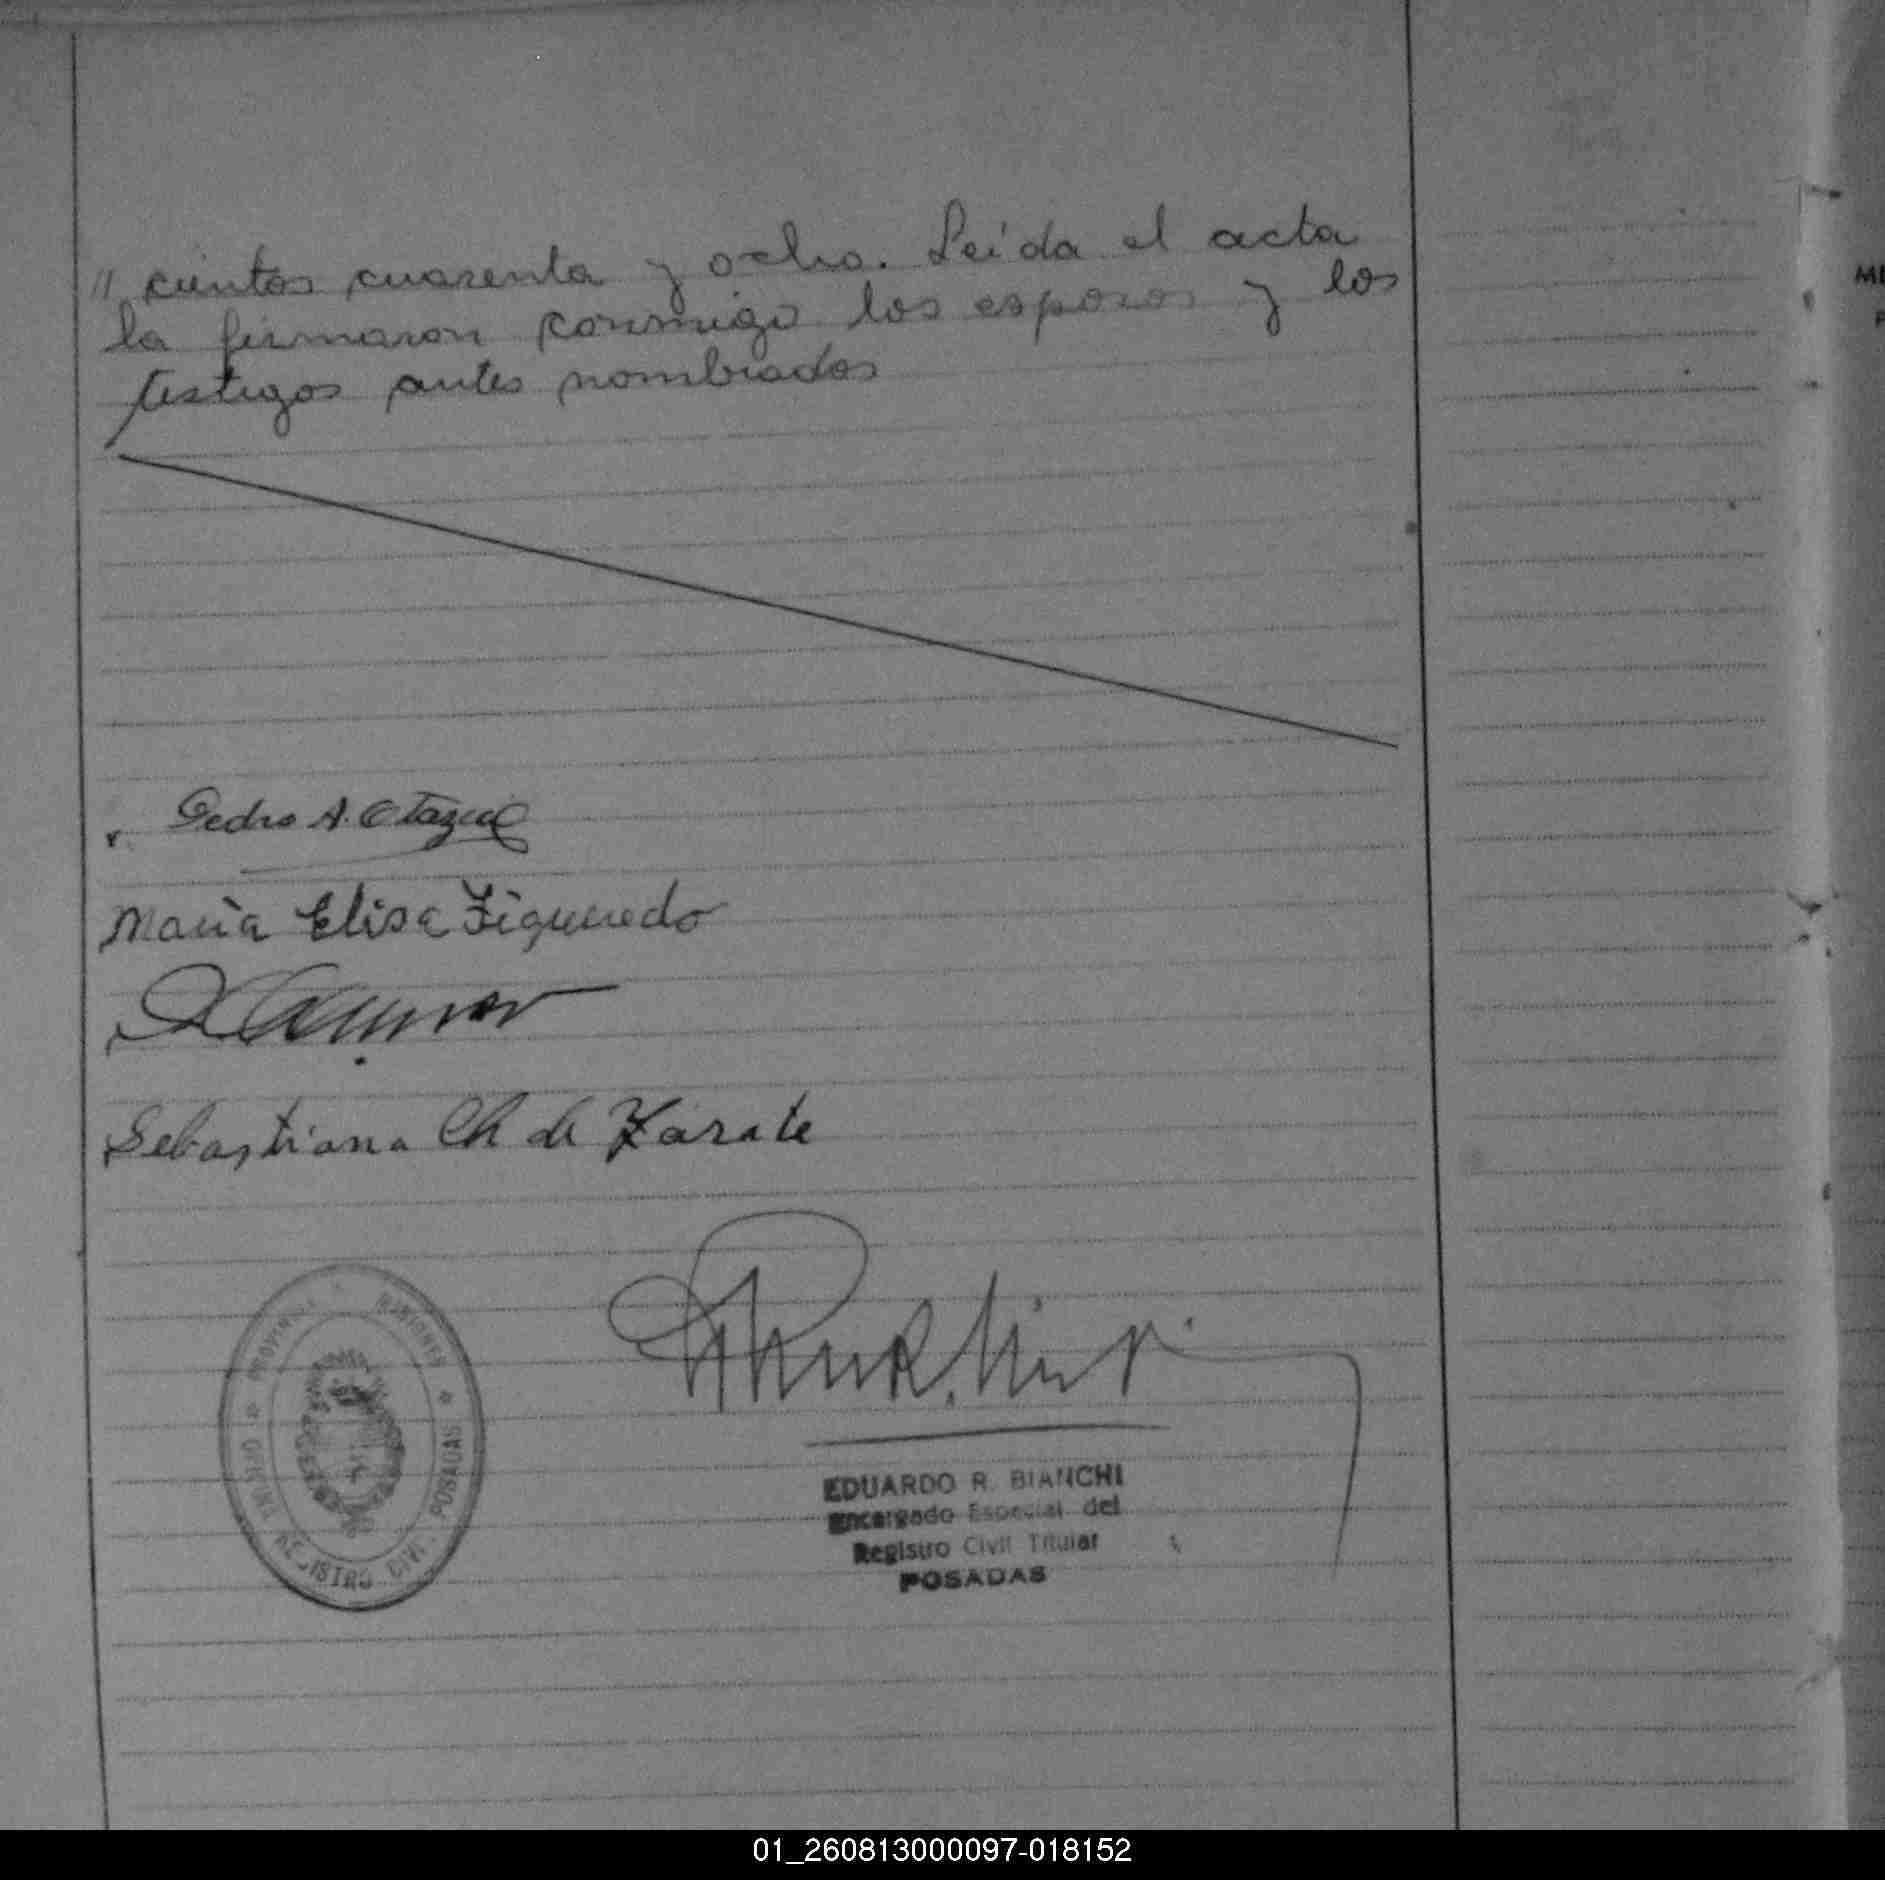 // cientos cuarenta y ocho. Leída el acta
la firmaron conmigo los esposos y los
testigos antes nombrados
Pedro A. Otazu
María Elisa Figueredo
Sebastiana Ch de Zarate
PROVINCIA MISIONES
OFICINA REGISTRO CIVIL POSADAS
EDUARDO R. BIANCHI
Encargado Especial del
Registro Civil Titular
POSADAS
01_260813000097-018152